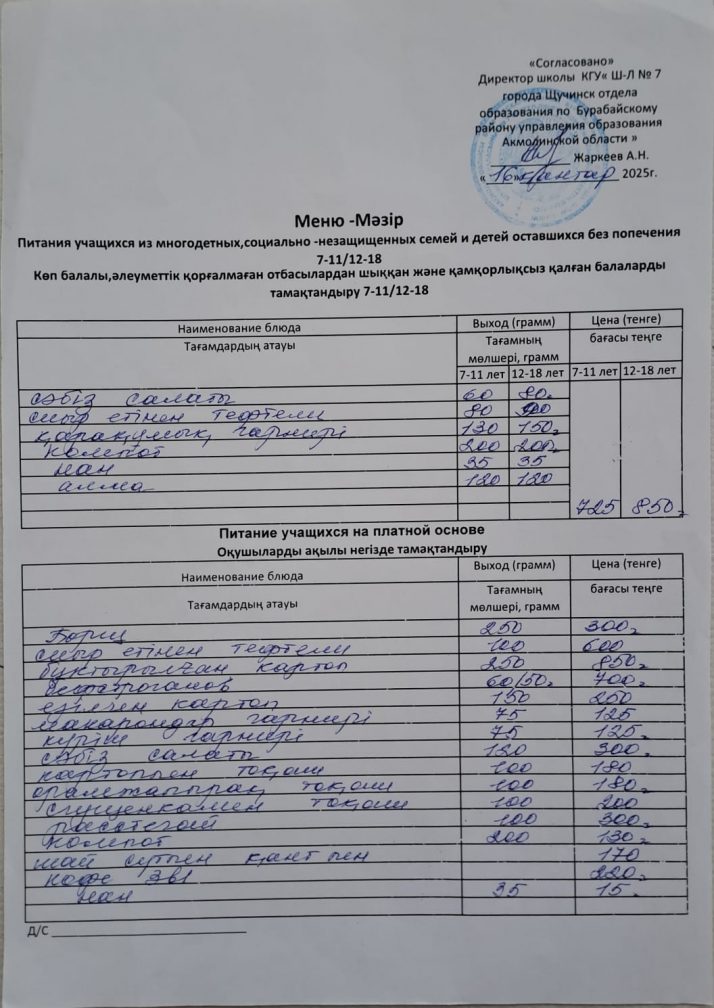 «Согласовано»
Директор школы КГУ« Ш-Л № 7
города Щучинск отдела
образования по Бурабайскому
району управления образования
Акмолинской области »
Жаркеев А.Н.
« 16 » қаңтар 2025г.
Меню -Мәзір
Питания учащихся из многодетных,социально -незащищенных семей и детей оставшихся без попечения
7-11/12-18
Көп балалы,әлеуметтік қорғалмаған отбасылардан шыққан және қамқорлықсыз қалған балаларды
тамақтандыру 7-11/12-18
Наименование блюда Выход (грамм) Цена (тенге)
Тағамдардың атауы Тағамның мөлшері, грамм бағасы теңге
7-11 лет 12-18 лет 7-11 лет 12-18 лет
сәбіз салаты 60 80
сиыр етінен тефтели 80 100
қарақұмық гарнирі 130 150
компот 200 200
нан 35 35
алма 120 120
725 850
Питание учащихся на платной основе
Оқушыларды ақылы негізде тамақтандыру
Наименование блюда Выход (грамм) Цена (тенге)
Тағамдардың атауы Тағамның мөлшері, грамм бағасы теңге
Борщ 250 300
сиыр етінен тефтели 100 600
бұқтырылған картоп 250 850
бефстроганов 60/50 700
езілген картоп 150 250
макарондар гарнирі 75 125
күріш гарнирі 75 125
сәбіз салаты 120 300
картоппен тоқаш 100 180
орамжапырақ тоқаш 100 180
сгущенкамен тоқаш 100 200
расстегай 100 300
компот 200 130
шай сүтпен қантпен 170
кофе 3в1 220
нан 35 15
Д/С